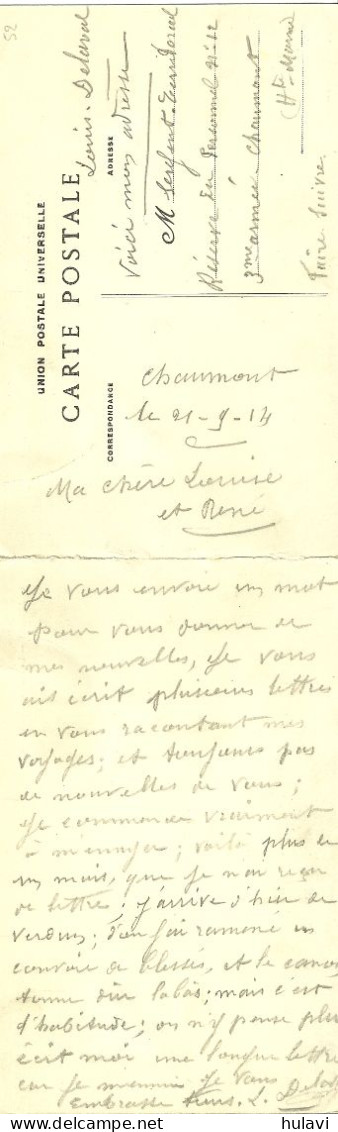 52
UNION POSTALE UNIVERSELLE
CARTE POSTALE
Louis. Delaval
ADRESSE
Voici mon adresse
M Sergent. Territorial
Réserve du Personnel 21-12
3me armée Chaumont
(Hte-Marne)
Faire Suivre
CORRESPONDANCE
Chaumont
le 21-9-14
Ma Chère Louise
et René
Je vous envoie un mot
pour vous donner de
mes nouvelles, Je vous
ais écrit plusieurs lettres
en vous racontant mes
voyages; et toujours pas
de nouvelles de vous;
Je commence vraiment
à m'ennuyer; voilà plus de
un mois, que je n'ai reçu
de lettre; j'arrive d'hier de
verdun; d'où j'ai ramené un
convoie de blessés, et le canon
tonne dur labàs; mais c'est
d'habitude; on n'y pense plus
écrit moi une longue lettre
car je m'ennuie Je vous
Embrasse tous. L. Delaval
hulavi
delcampe.net